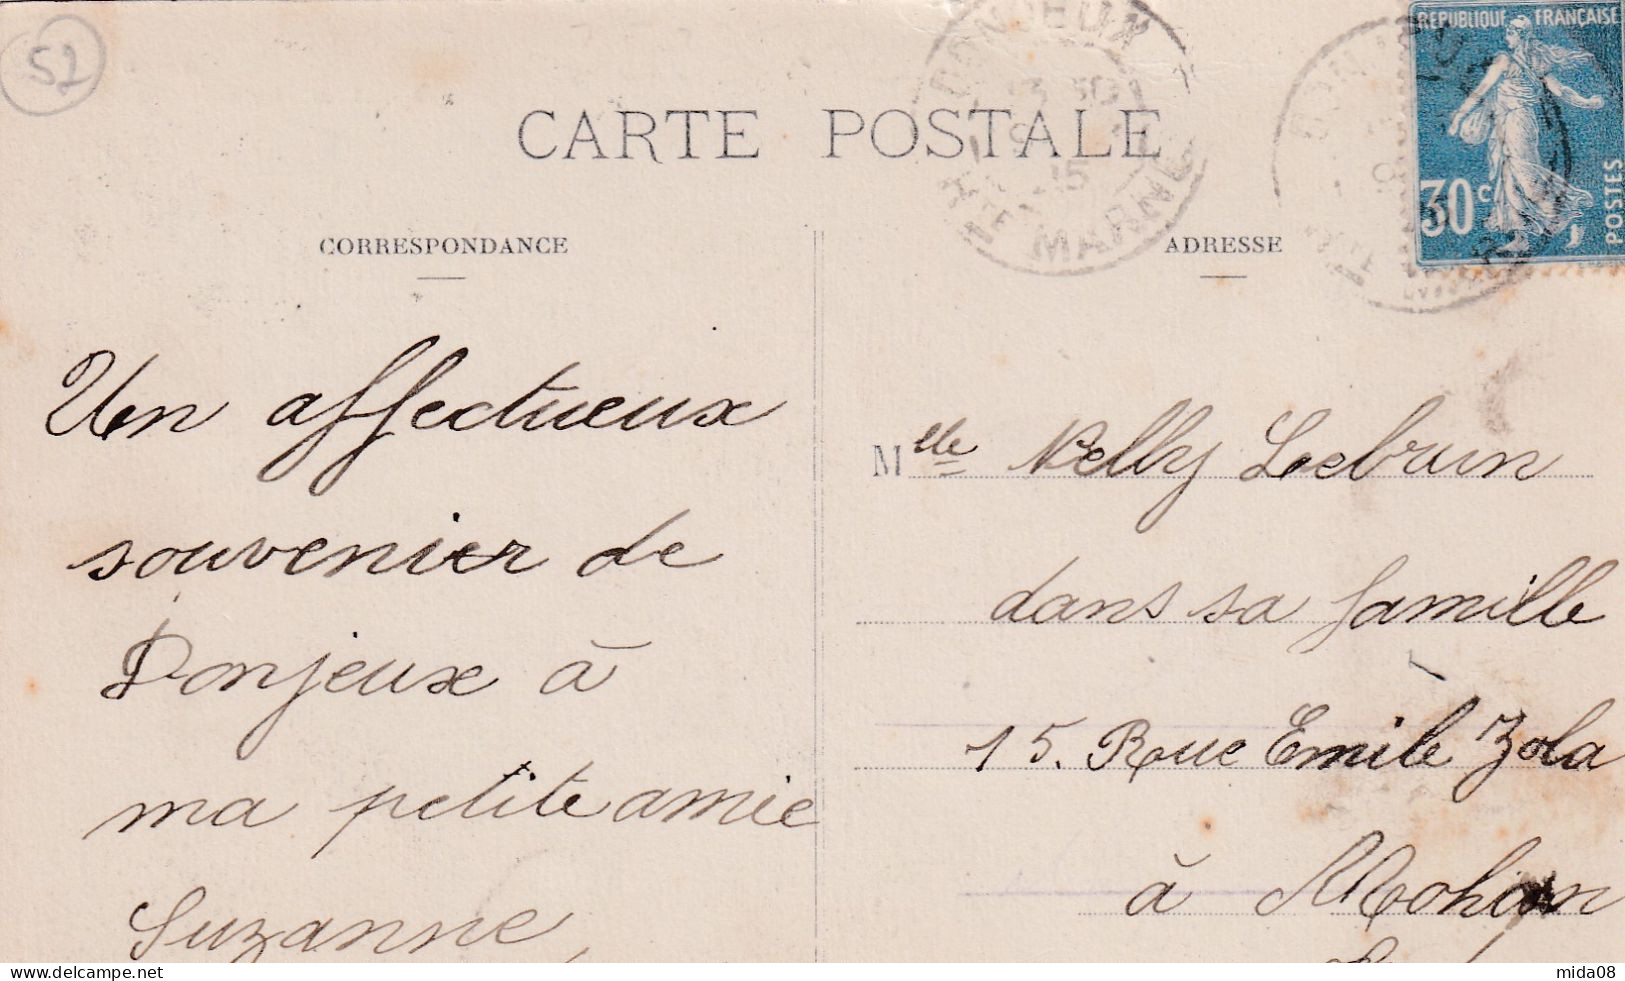 52
CARTE POSTALE
DONJEUX
13 30
15
HTE MARNE
REPUBLIQUE FRANÇAISE
30c
POSTES
CORRESPONDANCE
ADRESSE
Un affectueux
souvenier de
Donjeux à
ma petite amie
Suzanne,
Mlle Nelly Lebrun
dans sa famille
15. Rue Emile Zola
à Mohon
delcampe.net
mida08